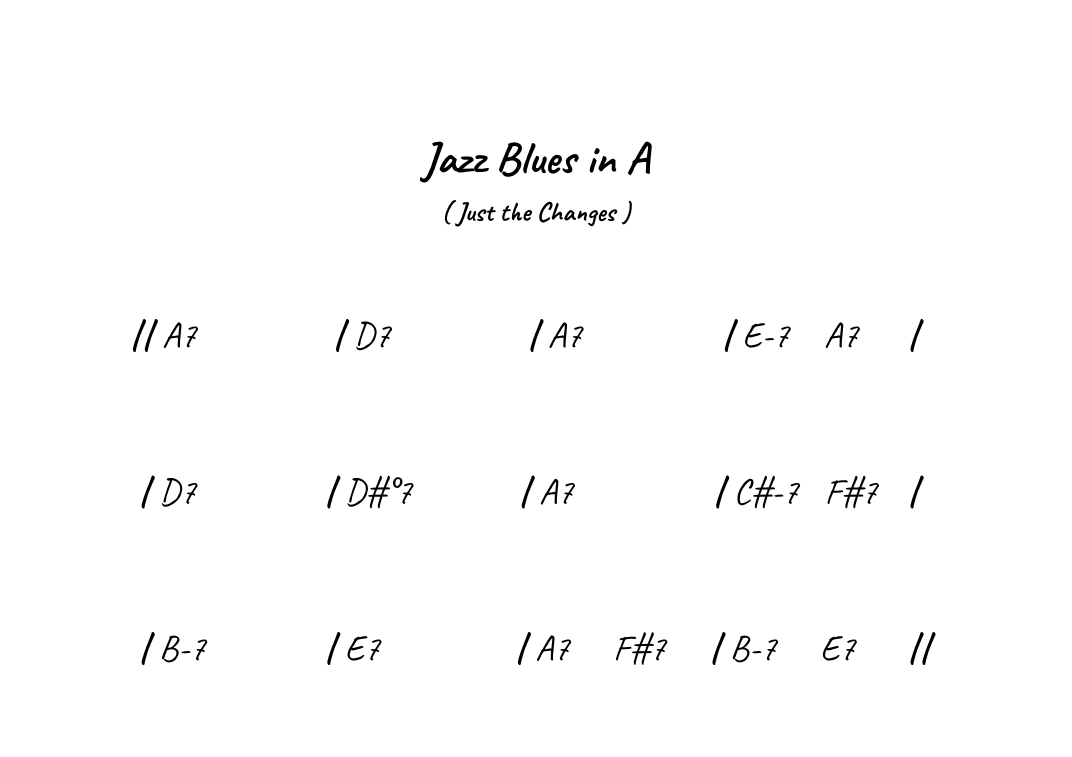 Jazz Blues in A
( Just the Changes )
|| A7 | D7 | A7 | E-7 A7 |
| D7 | D#°7 | A7 | C#-7 F#7 |
| B-7 | E7 | A7 F#7 | B-7 E7 ||